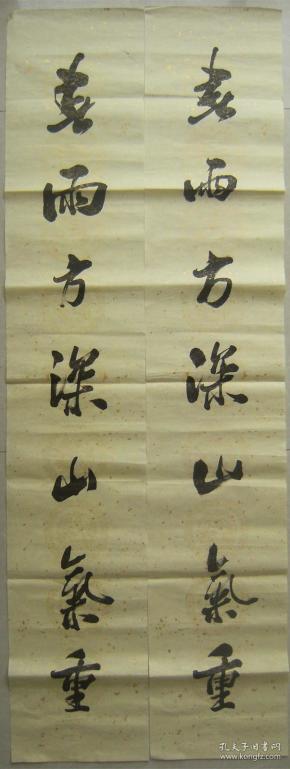 春雨方深山氣重
春雨方深山氣重
孔夫子旧书网
www.kongfz.com